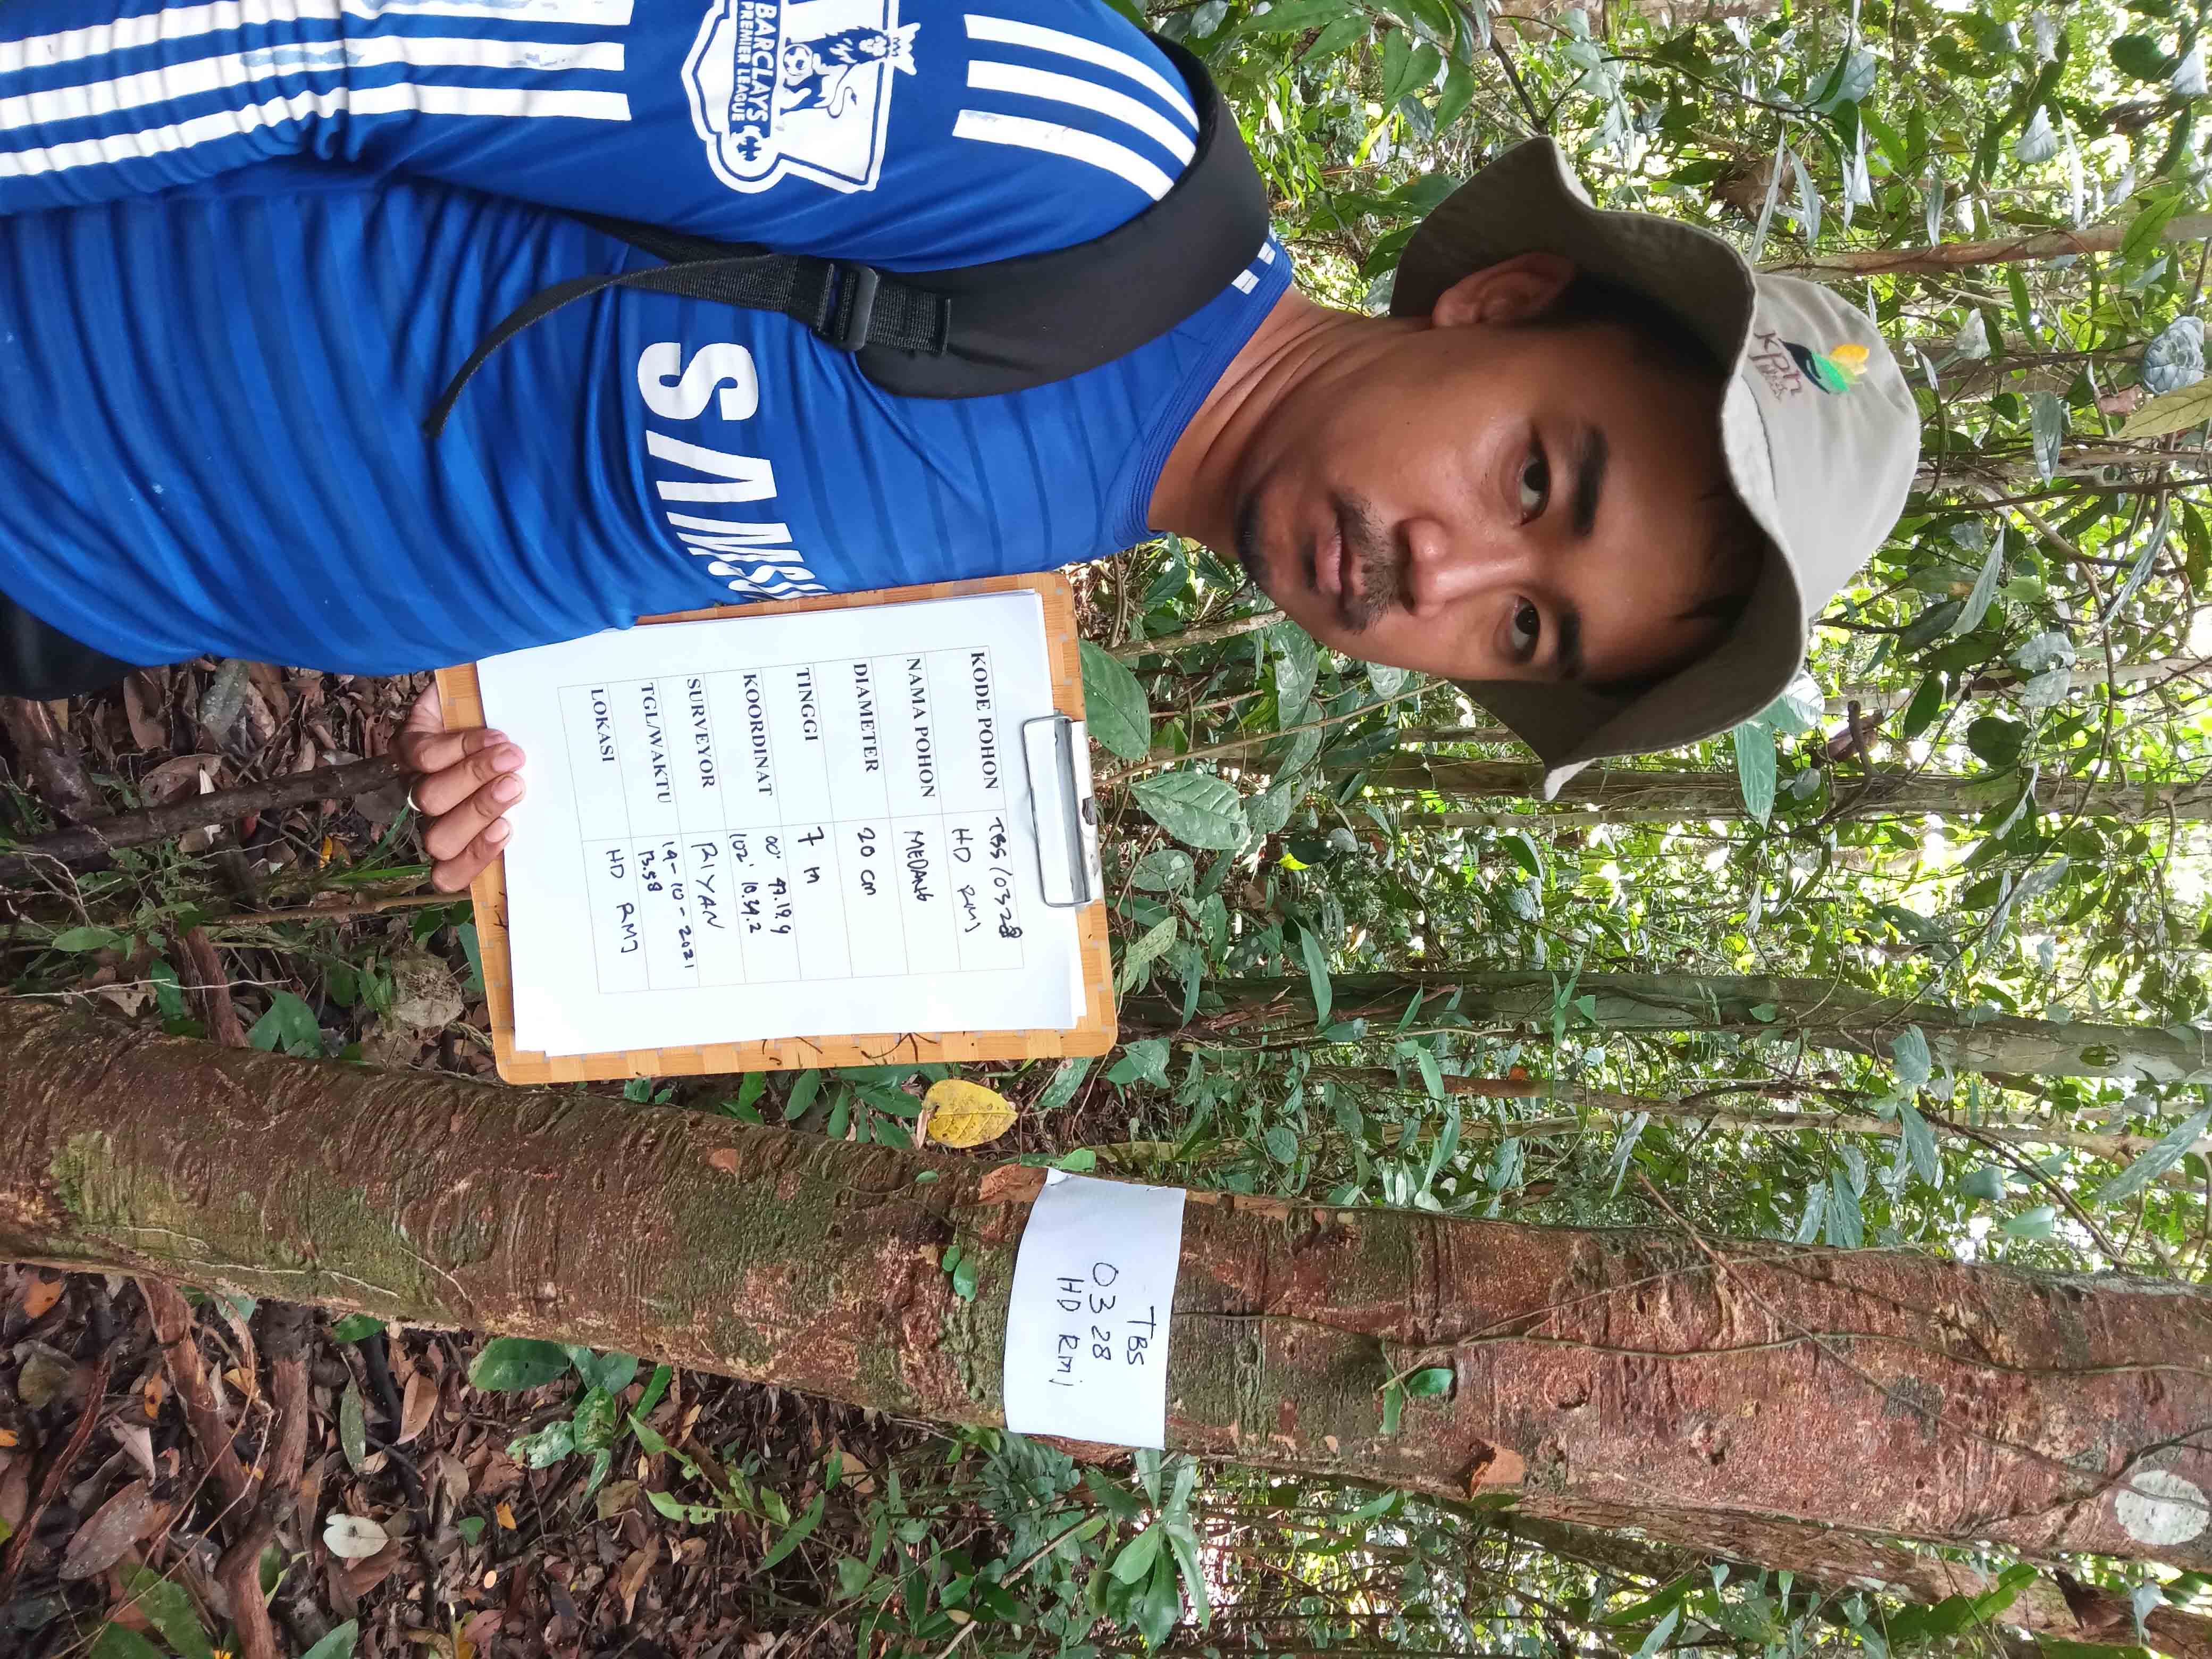 BARCLAYS
PREMIER LEAGUE
SAMS
kph
KODE POHON TBS/0328
HD RMJ
NAMA POHON MEDANG
DIAMETER 20 cm
TINGGI 7 M
KOORDINAT 00° 49.19.9
102° 10.54.2
SURVEYOR RIYAN
TGL/WAKTU 14-10-2021
13.58
LOKASI HD RMJ
TBS
0328
HD RMJ